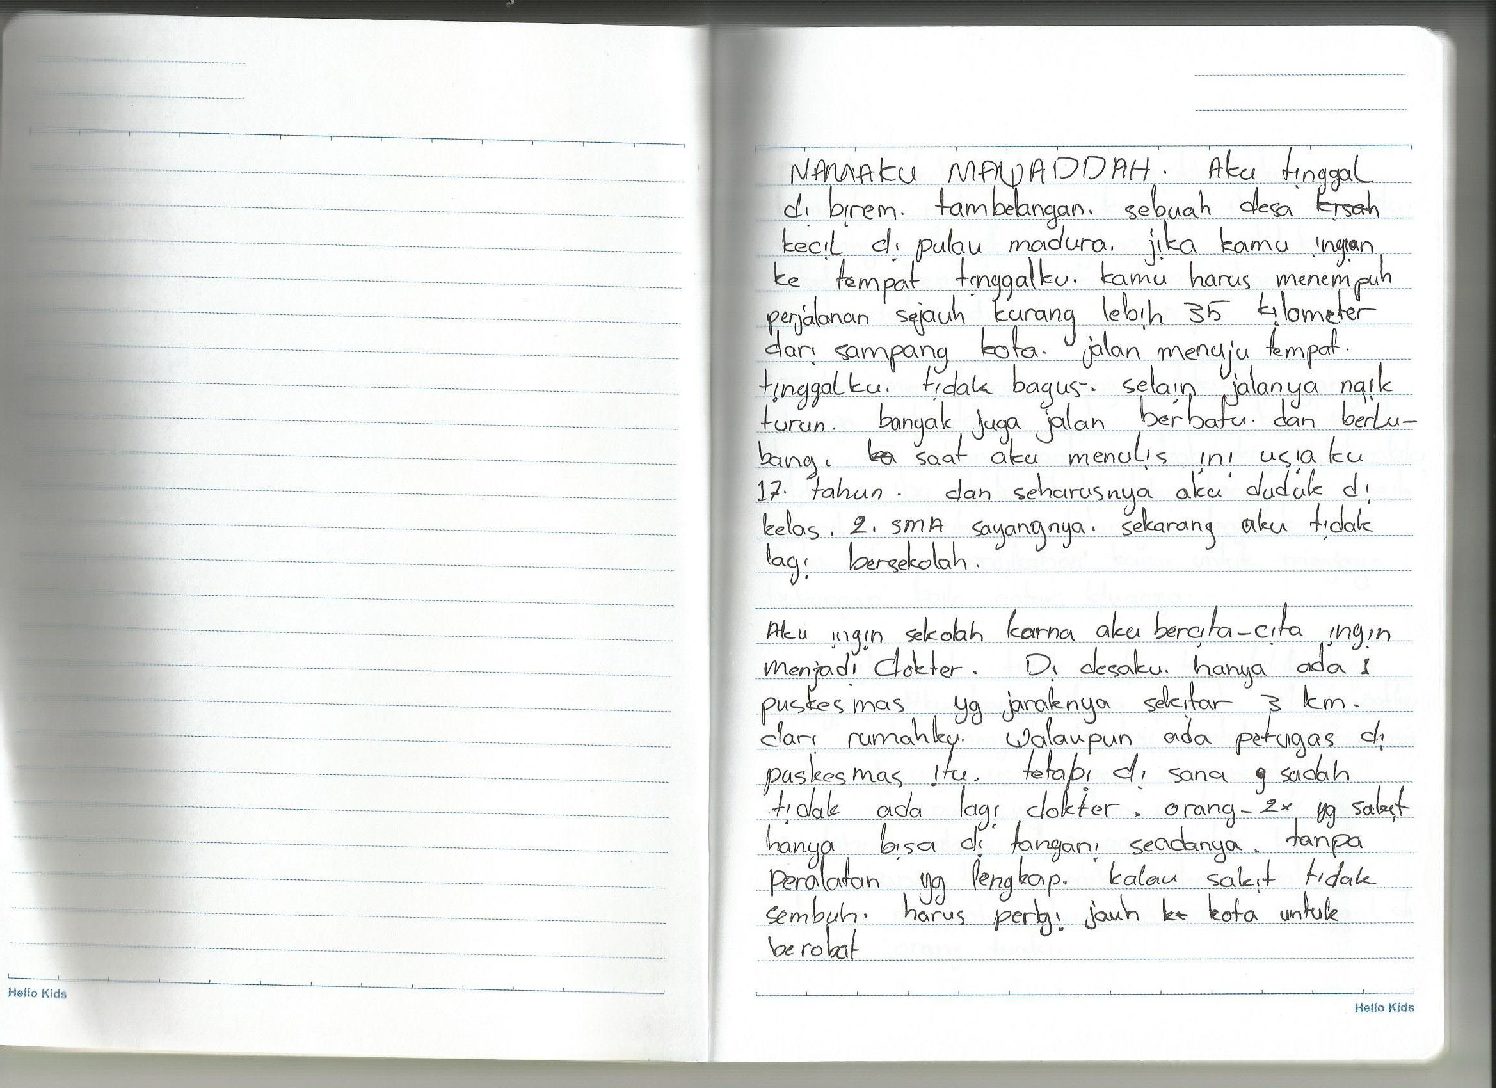 NAMAKU MAWADDAH. Aku tinggal
di birem. tambelangan. sebuah desa
kecil di pulau madura. jika kamu ingin
ke tempat tinggalku. kamu harus menempuh
perjalanan sejauh kurang lebih 35 kilometer
dari sampang kota. jalan menuju tempat.
tinggalku. tidak bagus-. selain jalanya naik
turun. banyak juga jalan berbatu. dan berlu-
bang. saat aku menulis ini usiaku
17. tahun. dan seharusnya aku duduk di
kelas. 2. SMA sayangnya. sekarang aku tidak
lagi bersekolah.
Aku ingin sekolah karna aku bercita-cita ingin
menjadi dokter. Di desaku. hanya ada 1
puskesmas yg jaraknya sekitar 3 km.
dari rumahku. Walaupun ada petugas di
puskesmas itu. tetapi di sana sudah
tidak ada lagi dokter. orang-2x yg sakit
hanya bisa di tangani seadanya. tanpa
peralatan yg lengkap. kalau sakit tidak
sembuh. harus pergi jauh ke kota untuk
berobat
Hello Kids
Hello Kids